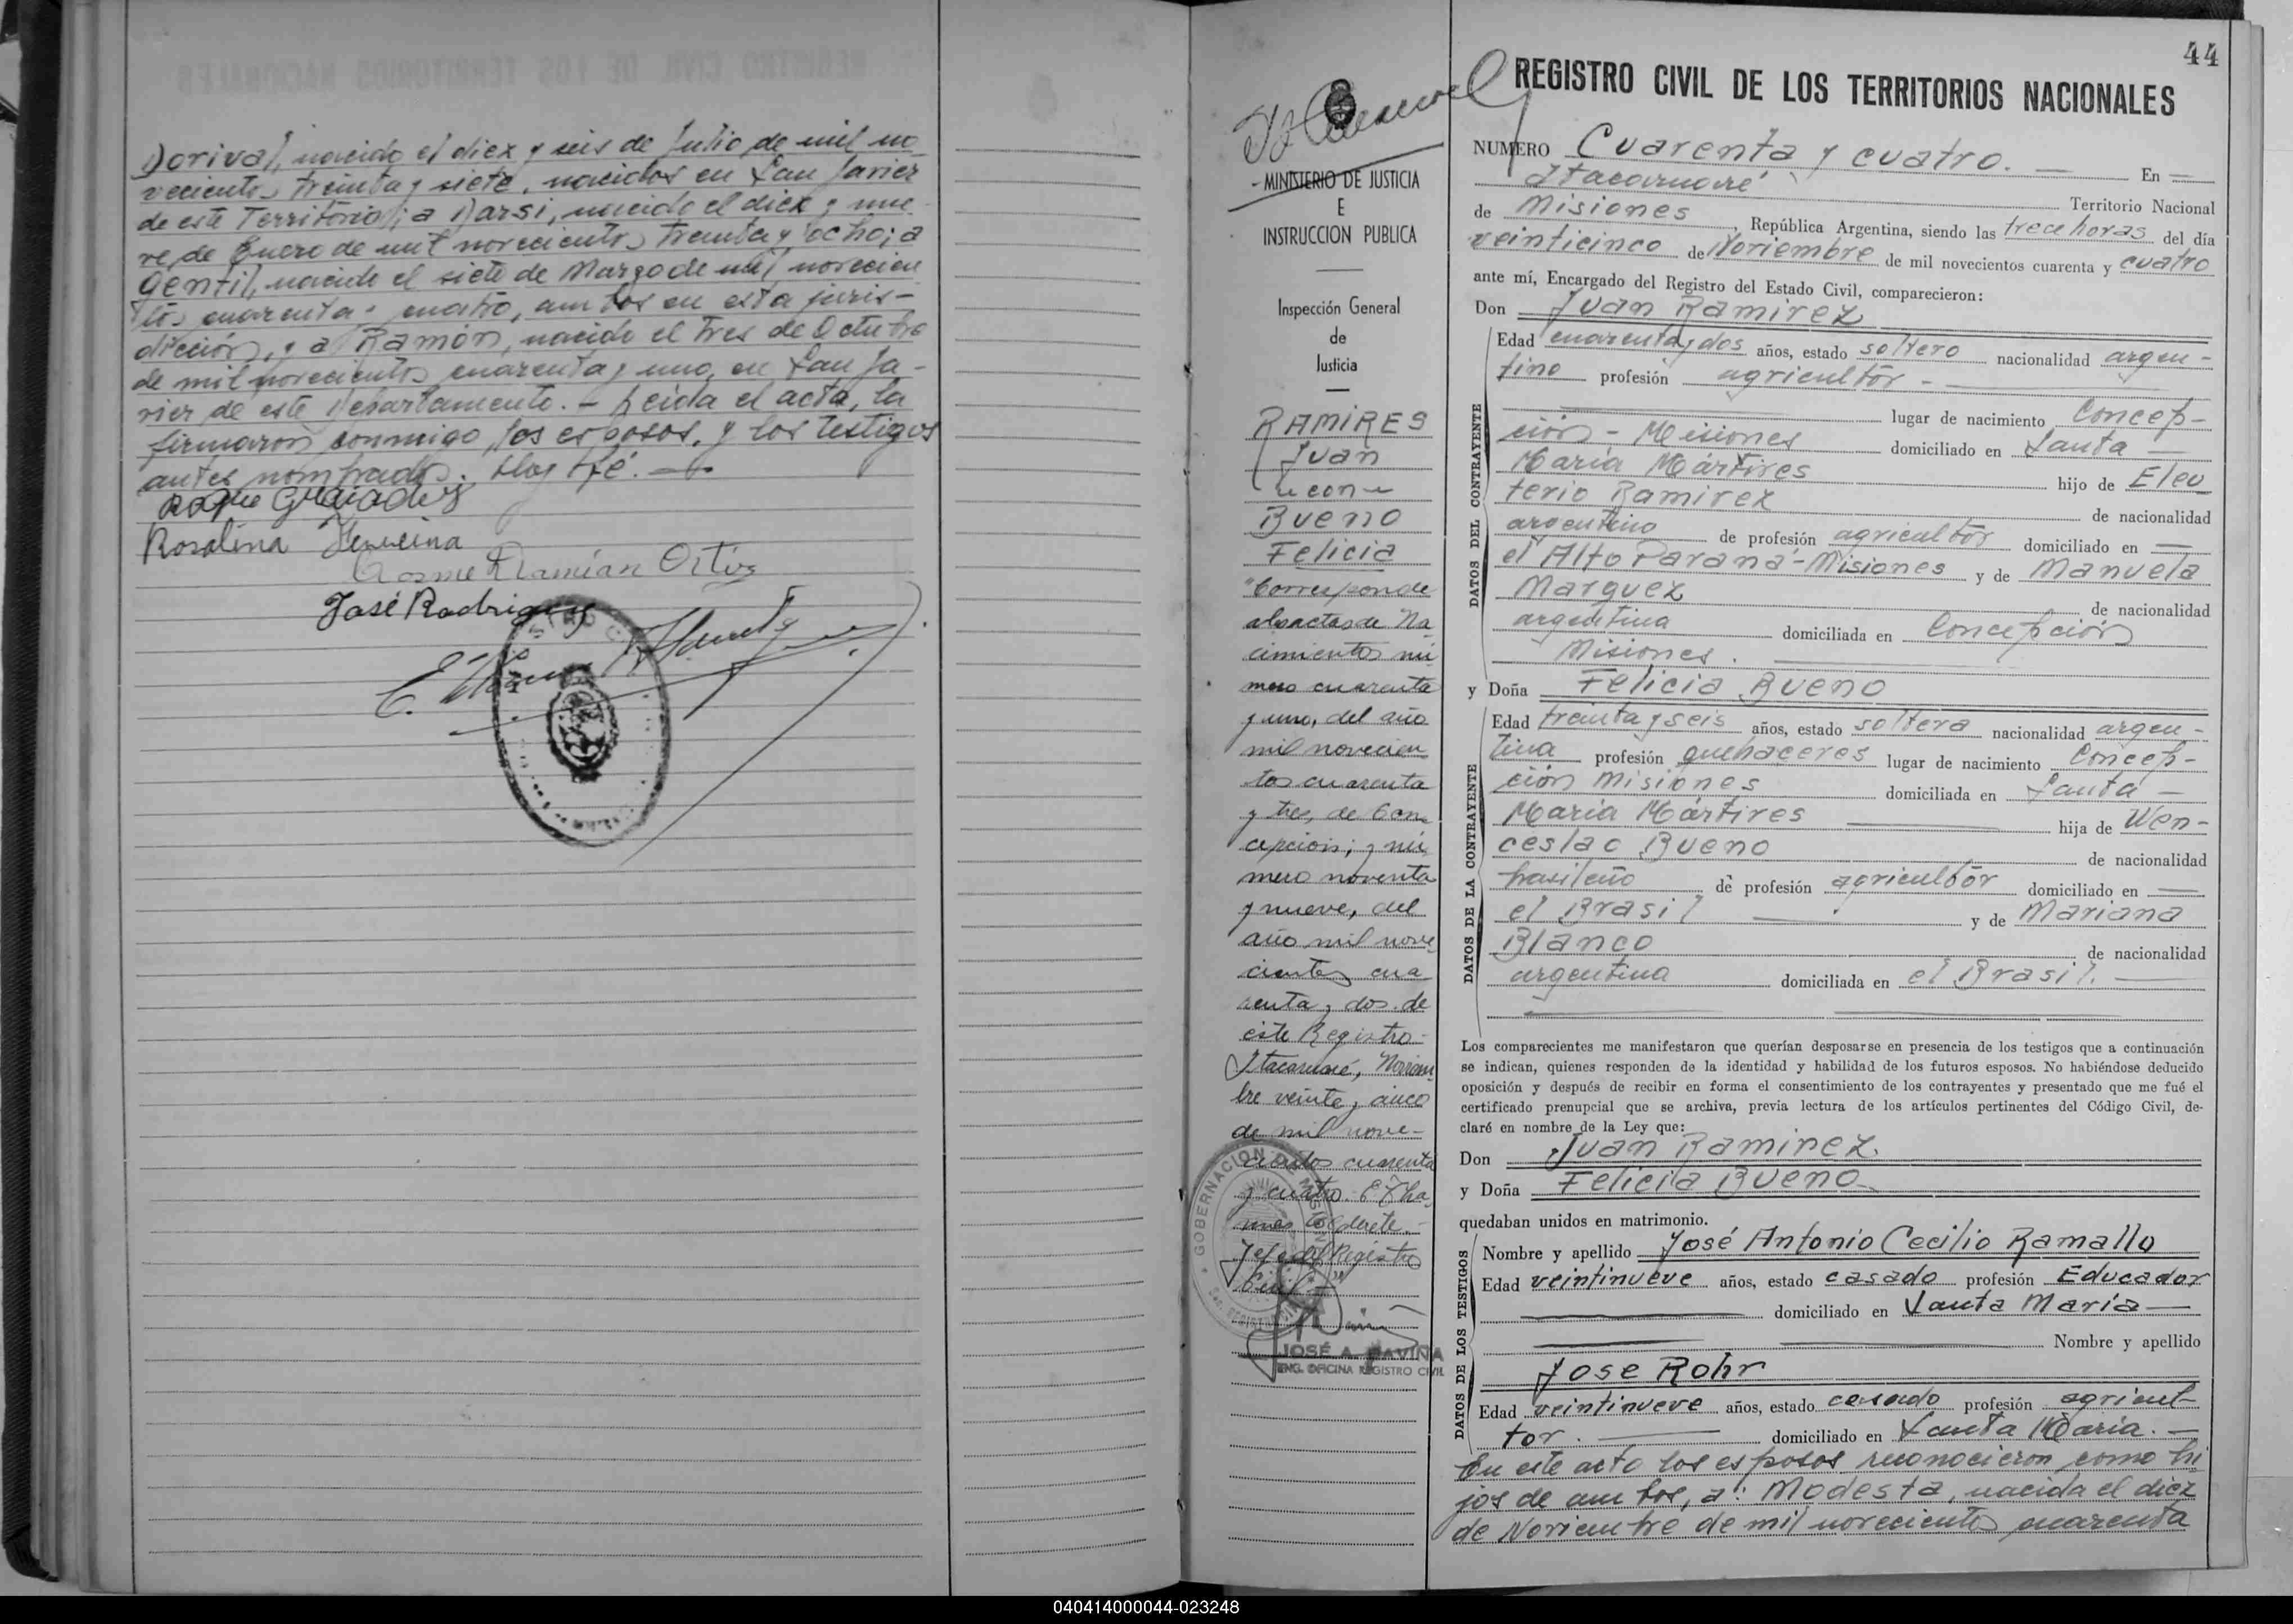 Dorival, nacido el diez y seis de Julio de mil no
vecientos treinta y siete, nacidos en San Javier
de este Territorio; a Darsi, nacido el diez y nue
ve de Enero de mil novecientos treinta y ocho; a
Gentil, nacido el siete de Marzo de mil novecien
tos cuarenta y cuatro, ambos en esta juris-
dicción, y a Ramón, nacido el tres de Octubre
de mil novecientos cuarenta y uno, en San Ja-
vier de este Departamento. - Leída el acta, la
firmaron conmigo, los esposos, y los testigos
antes nombrados. Doy fé. -
Rosalina
Cosme Damián Ortiz
José Rodriguez
44
REGISTRO CIVIL DE LOS TERRITORIOS NACIONALES
MINISTERIO DE JUSTICIA
E
INSTRUCCION PUBLICA
Inspección General
de
Justicia
RAMIRES
Juan
con
Bueno
Felicia
"Corresponde
al acta de Na
cimientos nú
mero cuarenta
y uno, del año
mil novecien
tos cuarenta
y tres, de Con
cepción; y nú
mero noventa
y nueve, del
año mil nove
cientos cua
renta y dos de
este Registro-
Itacaruaré, Noviem
bre veinte y cinco
de mil nove-
cientos cuarenta
y cuatro.
Jefe del Registro
Civil"
GOBERNACION DE MISIONES
JOSÉ A. PAVIÑA
ENC. OFICINA REGISTRO CIVIL
NUMERO Cuarenta y cuatro. En
Itacaruaré Territorio Nacional
de Misiones, República Argentina, siendo las trece horas del día
veinticinco de Noviembre de mil novecientos cuarenta y cuatro
ante mí, Encargado del Registro del Estado Civil, comparecieron:
Don Juan Ramirez
DATOS DEL CONTRAYENTE
Edad cuarenta y dos años, estado soltero nacionalidad argen-
tino profesión agricultor -
lugar de nacimiento Concep-
ción - Misiones domiciliado en Santa
María Mártires hijo de Eleu
terio Ramirez de nacionalidad
argentino de profesión agricultor domiciliado en
el Alto Paraná - Misiones y de Manuela
Marquez de nacionalidad
argentina domiciliada en Concepción
Misiones.
y Doña Felicia Bueno
DATOS DE LA CONTRAYENTE
Edad treinta y seis años, estado soltera nacionalidad argen-
tina profesión quehaceres lugar de nacimiento Concep-
ción Misiones domiciliada en Santa -
María Mártires hija de Wen-
ceslao Bueno de nacionalidad
brasileño de profesión agricultor domiciliado en
el Brasil y de Mariana
Blanco de nacionalidad
argentina domiciliada en el Brasil.
Los comparecientes me manifestaron que querían desposarse en presencia de los testigos que a continuación
se indican, quienes responden de la identidad y habilidad de los futuros esposos. No habiéndose deducido
oposición y después de recibir en forma el consentimiento de los contrayentes y presentado que me fué el
certificado prenupcial que se archiva, previa lectura de los artículos pertinentes del Código Civil, de-
claré en nombre de la Ley que:
Don Juan Ramirez
y Doña Felicia Bueno
quedaban unidos en matrimonio.
DATOS DE LOS TESTIGOS
Nombre y apellido José Antonio Cecilio Ramallo
Edad veintinueve años, estado casado profesión Educador
domiciliado en Santa María
Nombre y apellido
Jose Rohr
Edad veintinueve años, estado casado profesión agricul-
tor. domiciliado en Santa María. -
En este acto los esposos reconocieron como hi
jos de ambos, a: Modesta, nacida el diez
de Noviembre de mil novecientos cuarenta
040414000044-023248